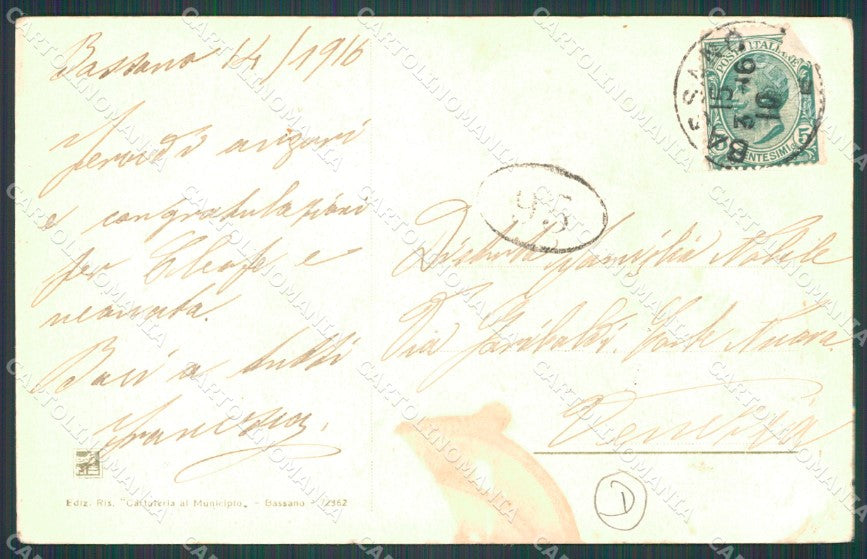 Bassano 14/1916
fervidi auguri
e congratulazioni
per e
neonata.
Baci a tutti
Distinta Famiglia Nobile
Via Garibaldi. Corte Nuova.
Venezia
95
BASSANO
15
3 - 16
10
POSTE ITALIANE
5 CENTESIMI 5
D
Ediz. Ris. "Cartoleria al Municipio„ - Bassano - 72362
CARTOLINOMANIA